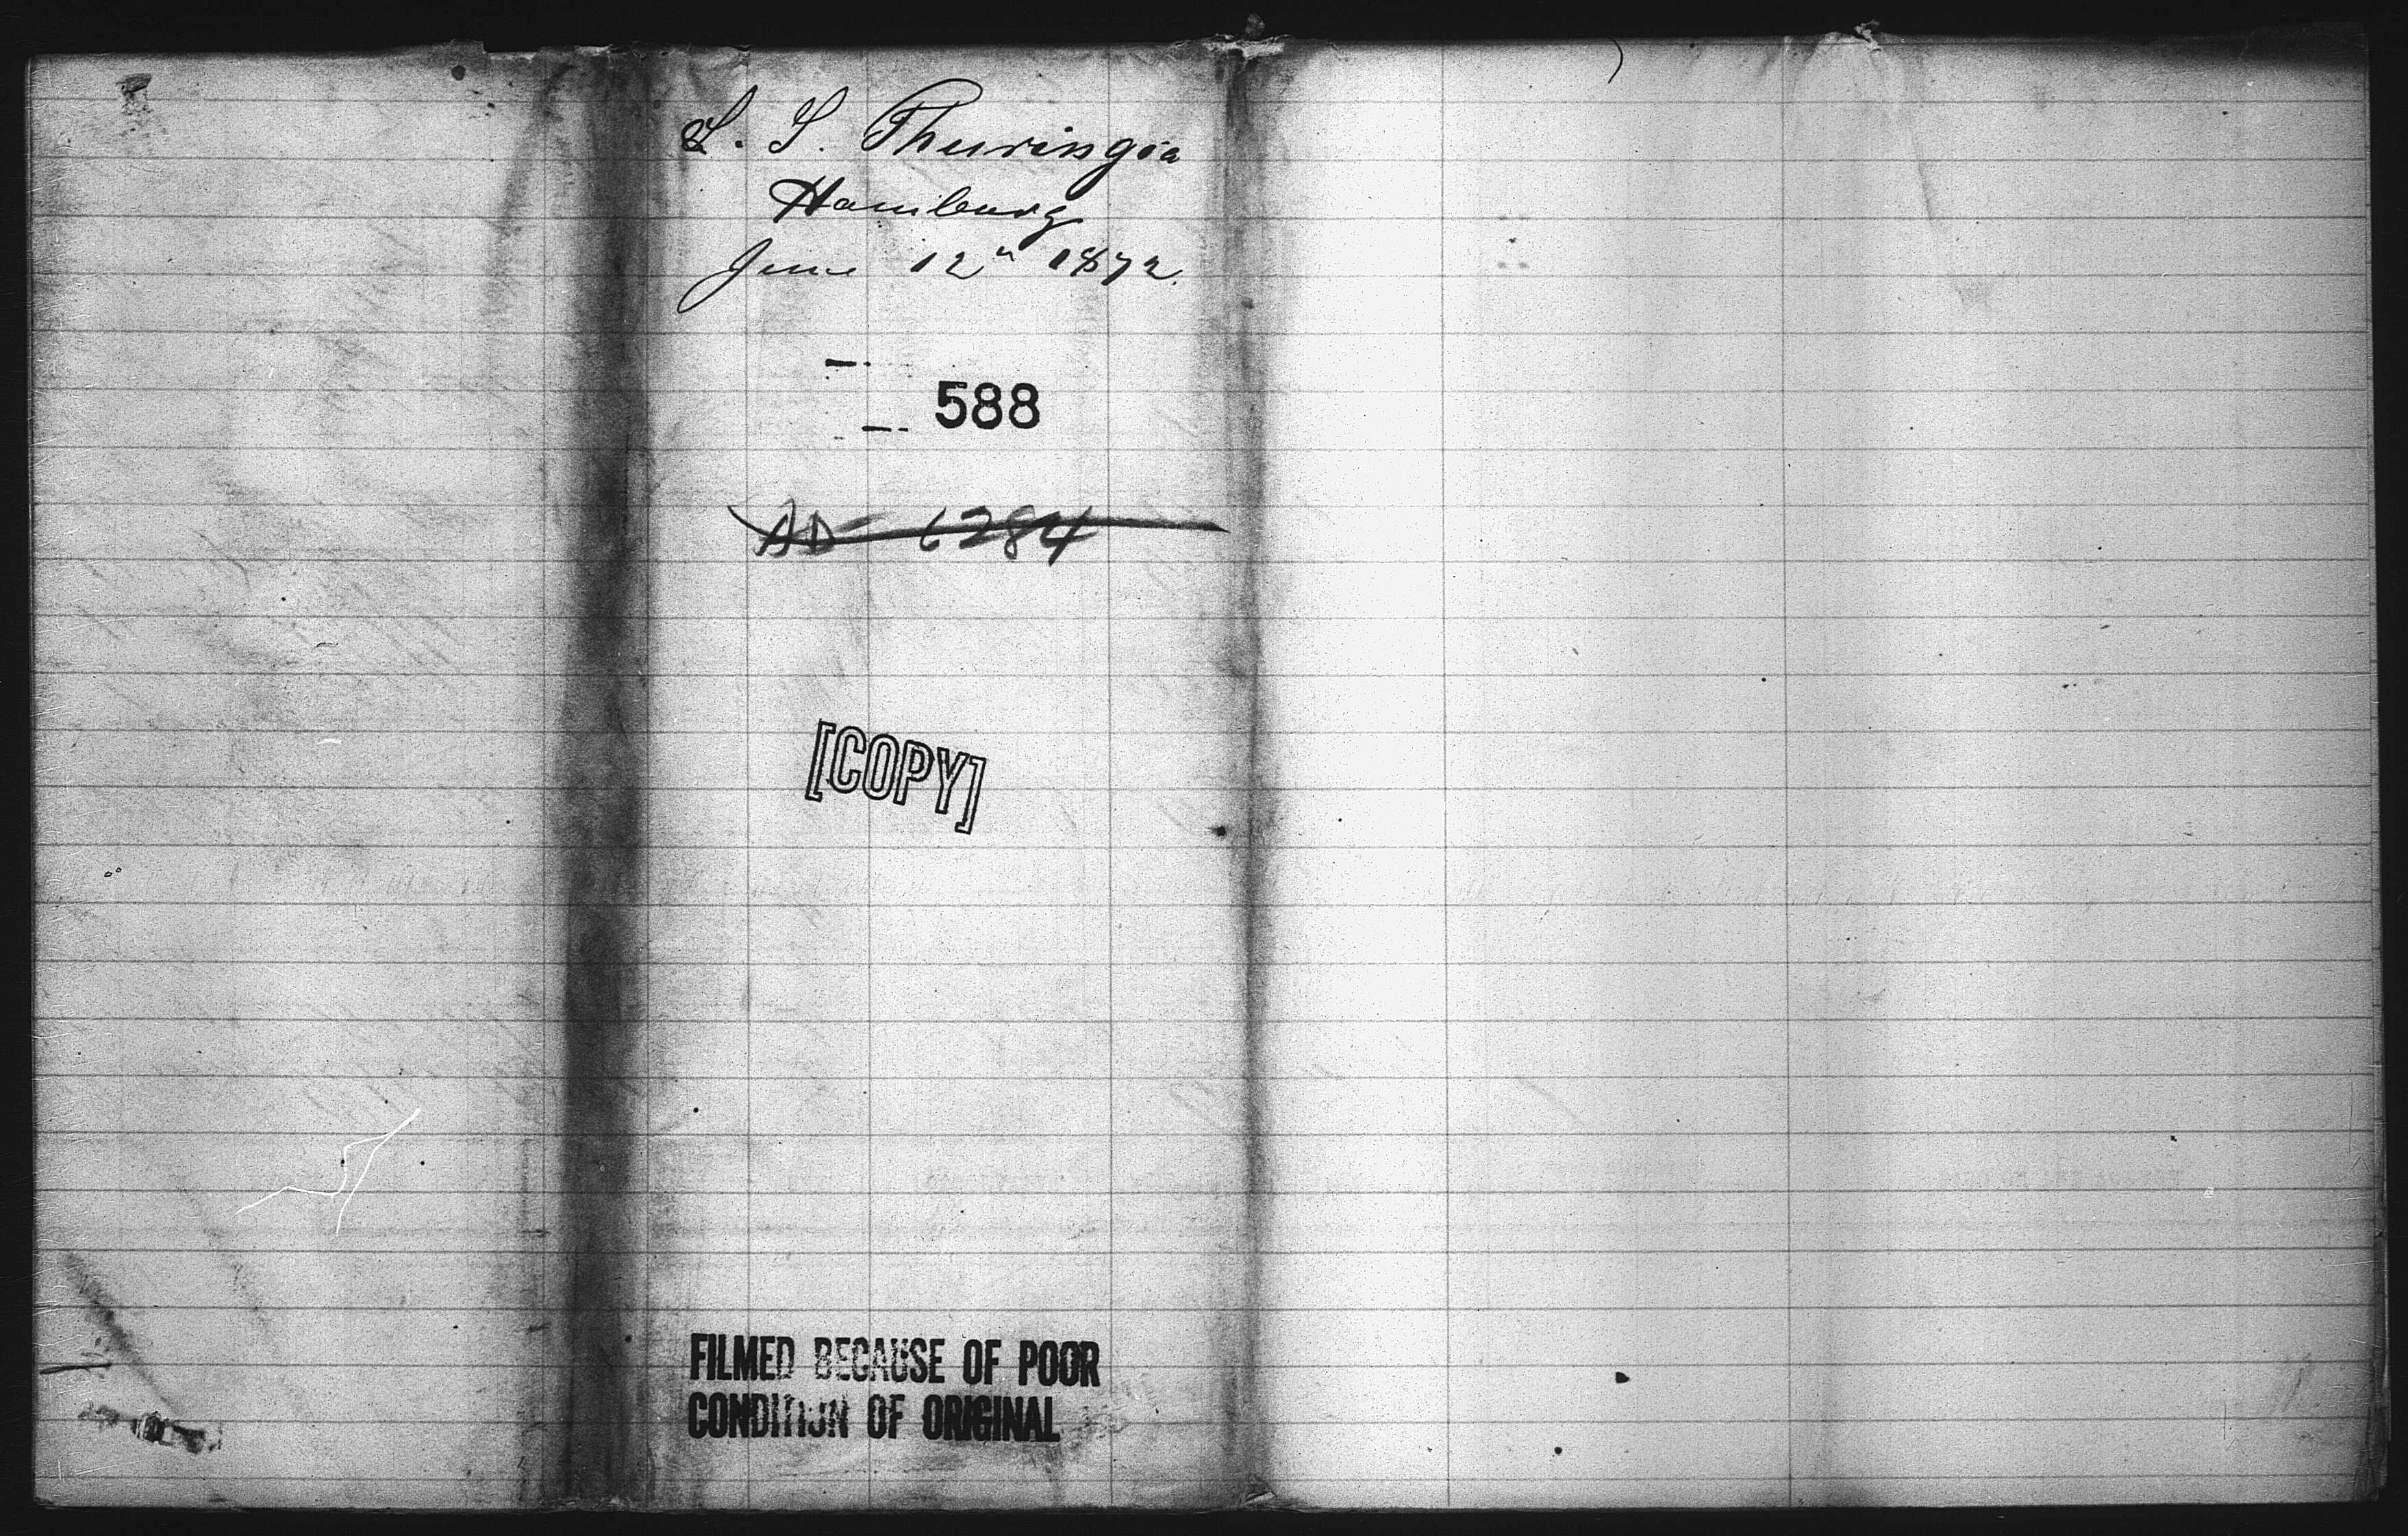 S. S. Thuringia
Hamburg
June 12" 1872.
588
AD 6284
[COPY]
FILMED BECAUSE OF POOR
CONDITION OF ORIGINAL